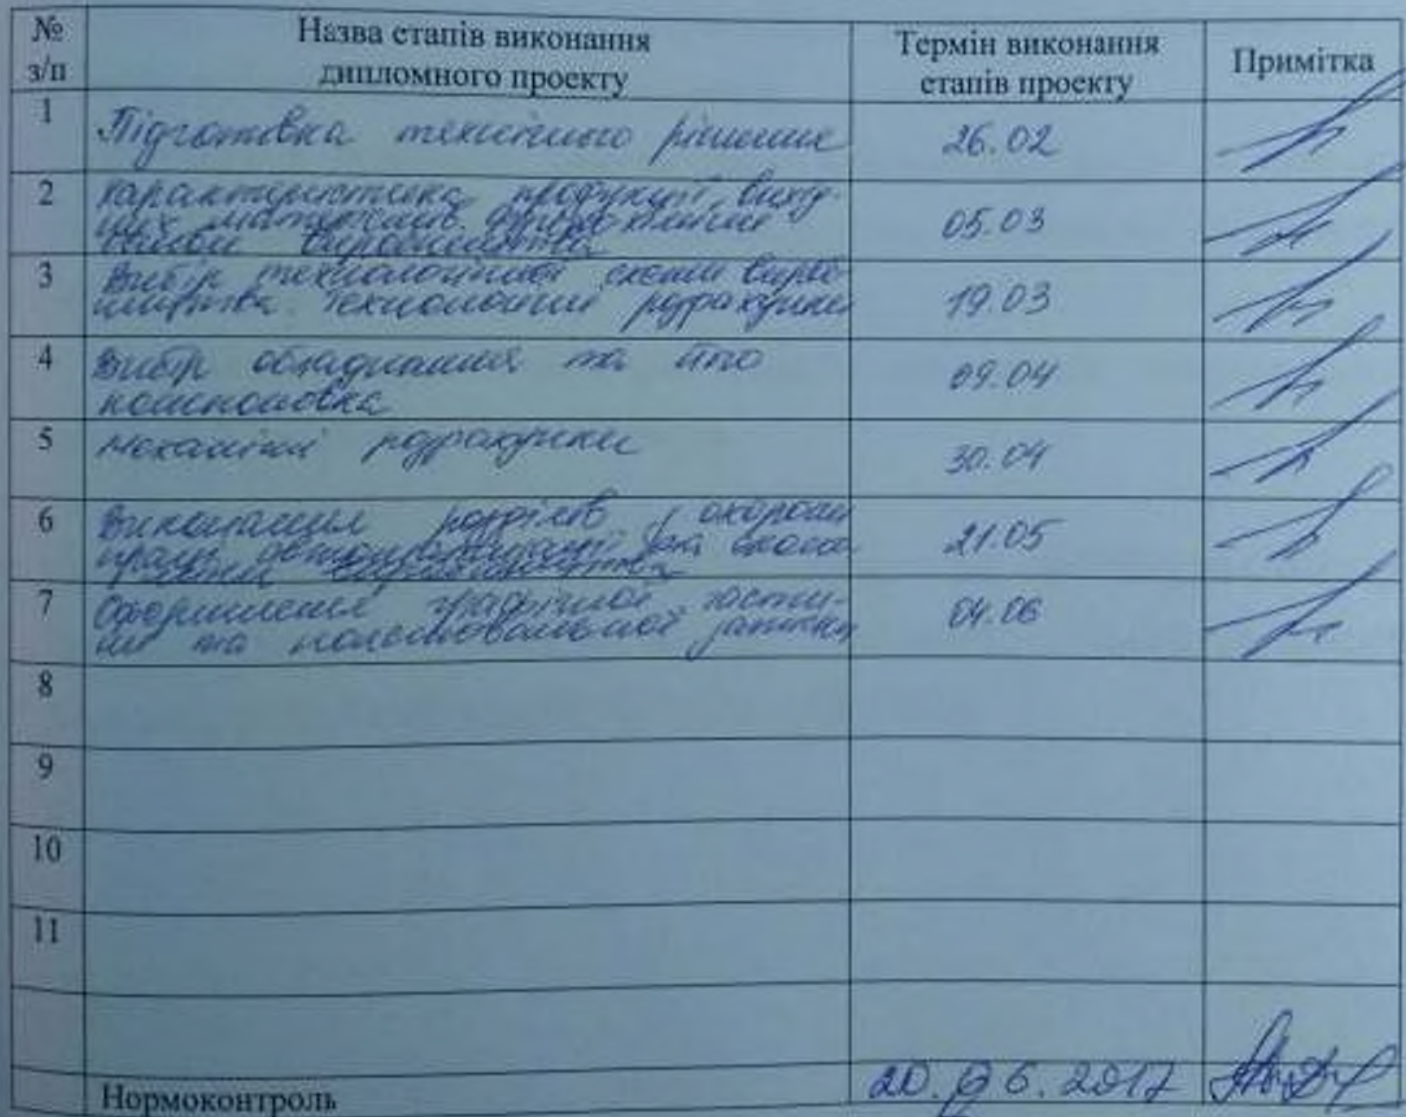 № з/п
Назва етапів виконання дипломного проекту
Термін виконання етапів проекту
Примітка
1
Підготовка технічного рішення
26.02
2
Характеристика продукції, вихід-
них матеріалів. Фізико хімічні
основи виробництва
05.03
3
Вибір технологічної схеми вироб-
ництва. Технологічні розрахунки
19.03
4
Вибір обладнання та його
компоновка
09.04
5
Механічні розрахунки
30.04
6
Виконання розділів з охорони
праці, автоматизації та
виробництва
21.05
7
Оформлення графічної части-
ни та пояснювальної записки
04.06
8
9
10
11
Нормоконтроль
20.06.2017